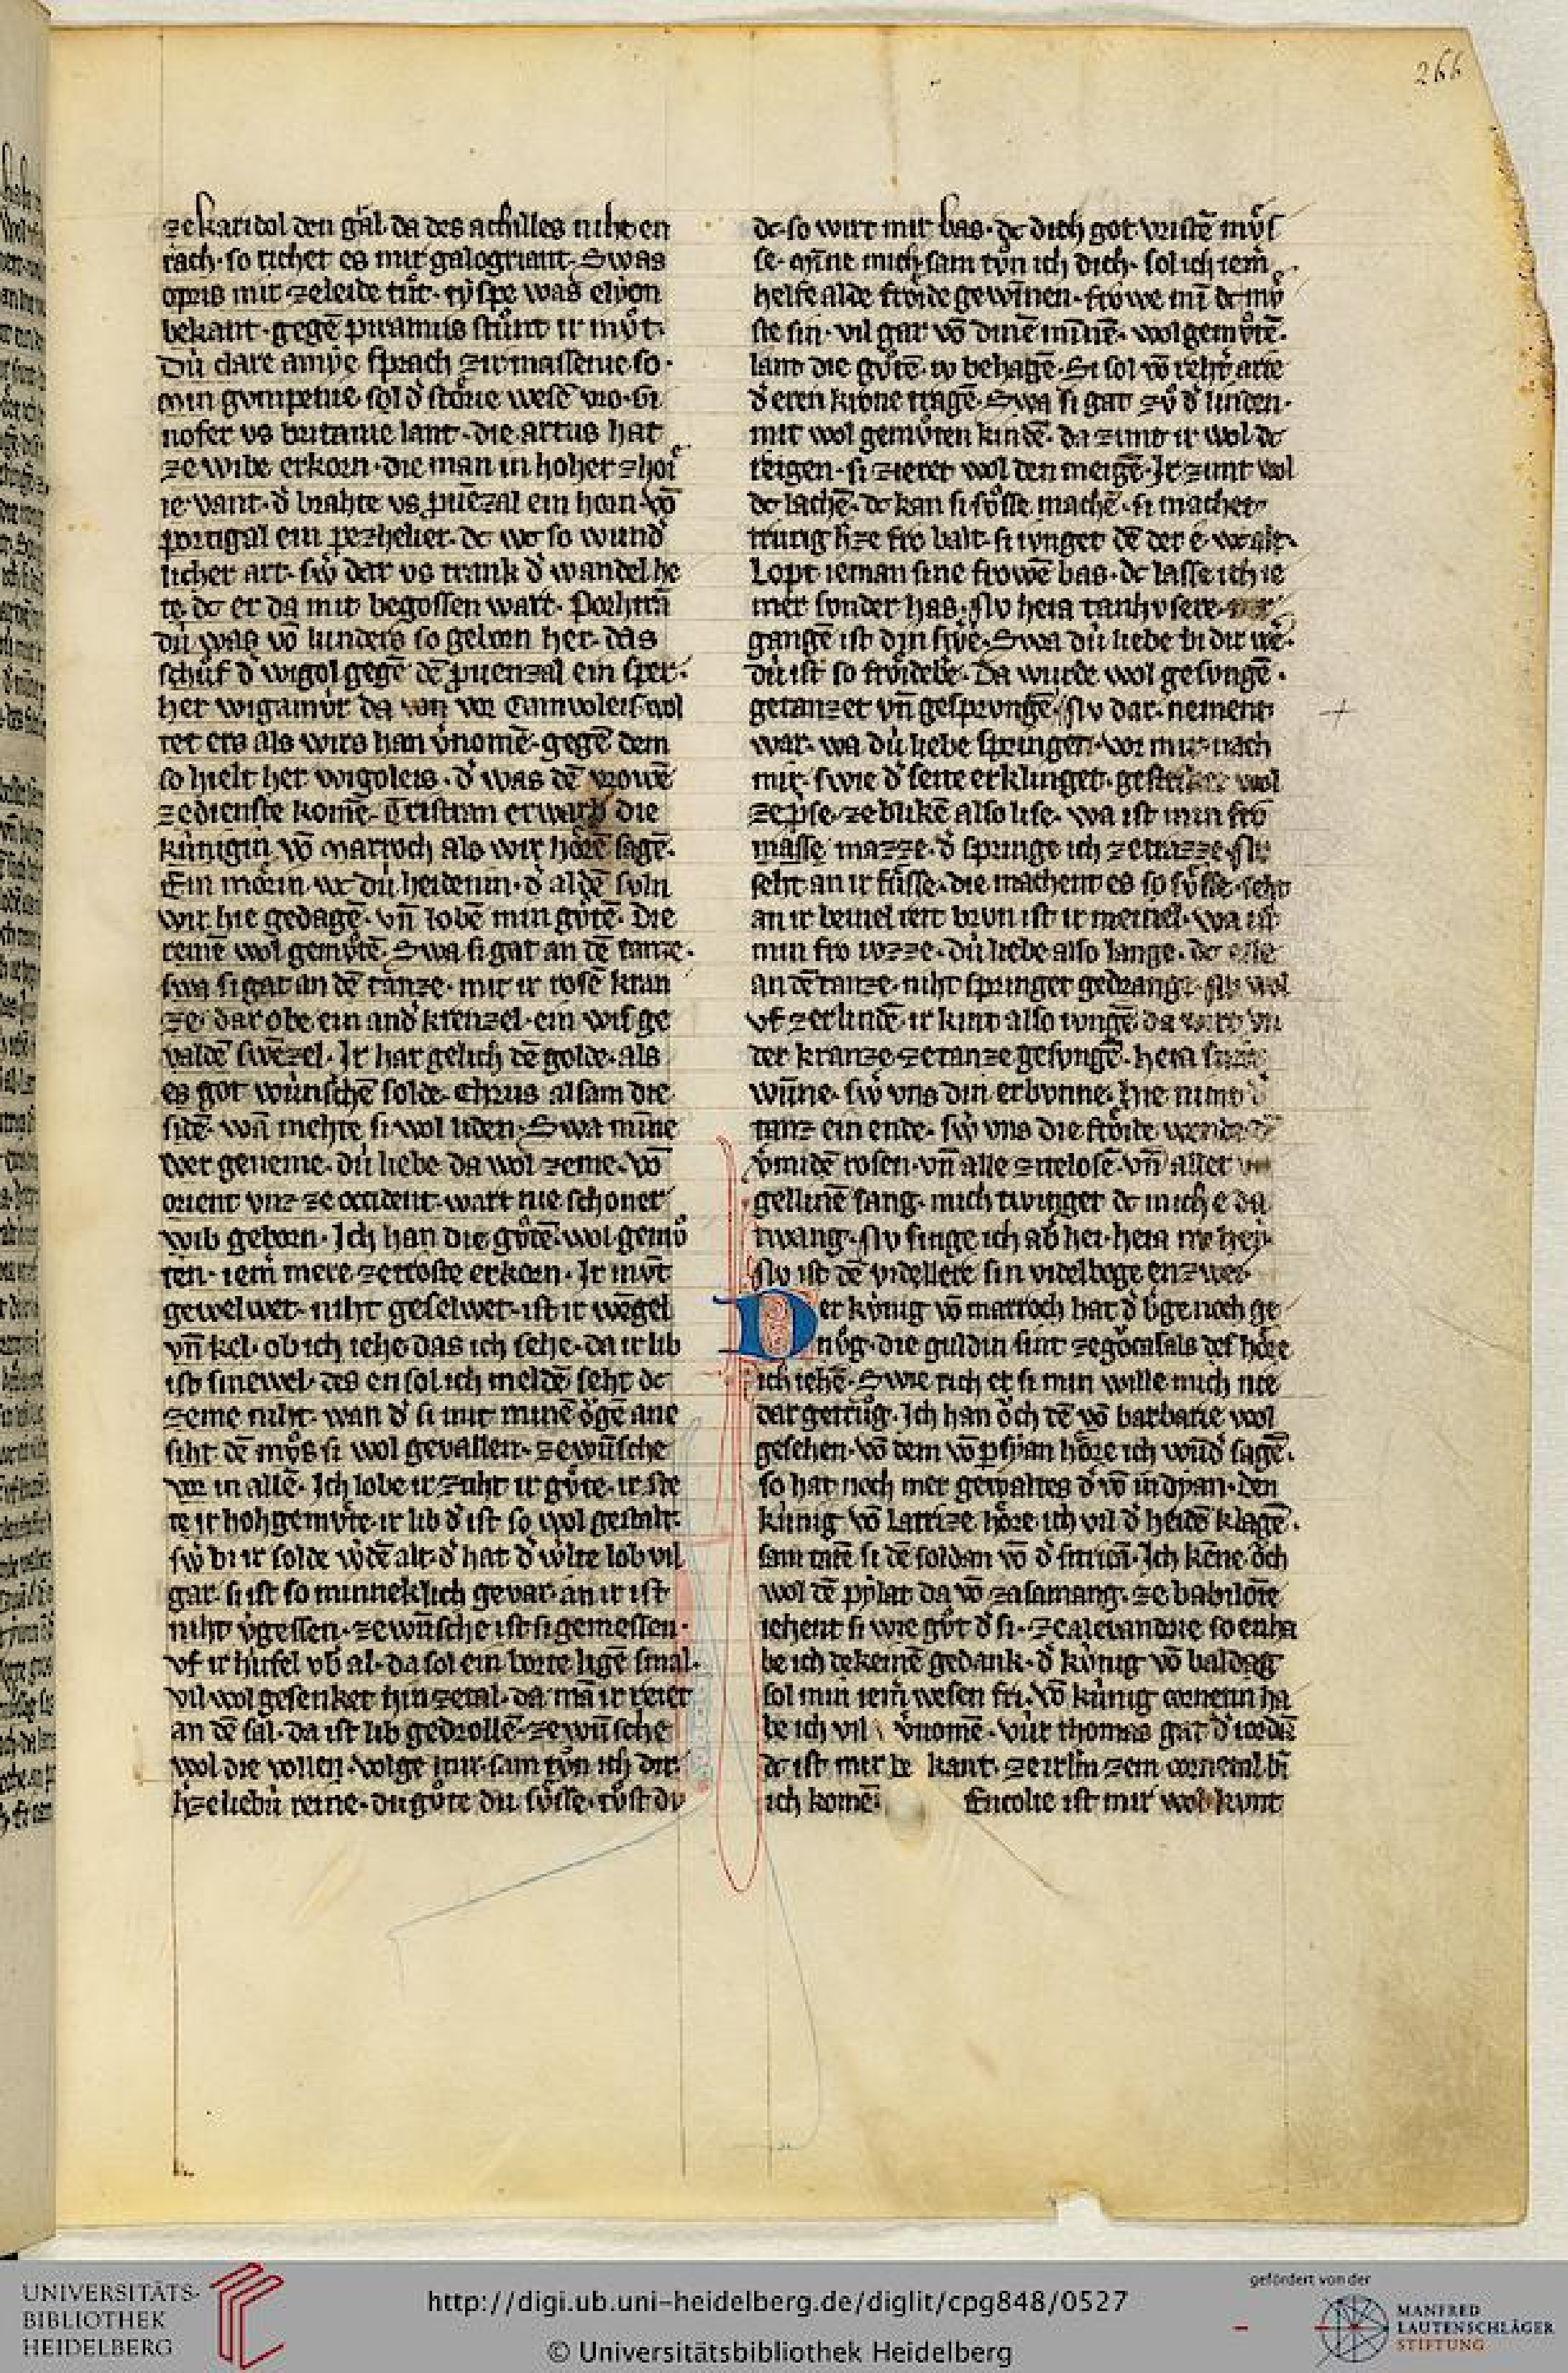 266
ze karidol den gᷝal. da des achilles niht en
rach. so richet es mir galogriant. Swas
opris mit zeleide tuͦt. tyspe was elyon
bekant. gegē piramus stuͦnt ir muͦt.
Dú clare amye sprach zir massenie. so
min gvmpenie. sol d᾽ störie wesē vro. Gi
nofer vs britanie lant. die artus hat
ze wibe erkorn. die man in hoher
ie vant. d᾽ brahte vs puēzal ein horn. vō
portigal ein pezhelier. dc wc so wund᾽
licher art. sw᾽ dar vs trank d᾽ wandel he
te. dc er da mit begossen wart.
dú was vō lunders so geborn her. das
schuͦf d᾽ wigol gegē dē puenzal ein sper.
her wigamur da von vor Camvoleis wol
tet ers als wirs han v᾽nomē. gegē dem
so hielt her wigoleis. d᾽ was dē vrowē
ze dienste komē. Tristran erwarb die
kúnigin vō marroch als wir hoͤrē sagē.
Ein mörin wc dú heidenin. d᾽ aldē svln
wir hie gedagē. vn̄ lobē min guͦtē. Die
reinē wol gemuͦtē. Swa si gat an dē tanze.
swa si gat an dē tanze. mit ir rosē kran
ze. dar obe ein and᾽ krenzel. ein wis ge
valdē swēzel. Ir har gelich dē golde. als
es got wúnschē solde. Chrus alsam die
sidē. wā mehte si wol liden. Swa minne
wer geneme. dú liebe da wol zeme. vō
orient vnz ze occident. wart nie schoner
wib geborn. Ich han die guͦtē. wol gemuͦ
ten. iem᾽ mere ze troste erkorn. Ir mvt
gewelwet. niht geselwet. ist ir wēgel
vn̄ kel. ob ich iehe das ich sehe. da ir lib
ist sinewel. des en sol ich meldē seht dc
zeme niht. wan d᾽ si mit minē oͮgē ane
siht. dē muͦs si wol gevallen. ze wúnsche
vor in allē. Ich lobe ir zuht ir guͦte. ir ste
te ir hohgemuͦte. ir lib d᾽ ist so wol gestalt.
sw᾽ bi ir solde w᾽dē alt. d᾽ hat d᾽ w᾽lte lob vil
gar. si ist so minneklich gevar. an ir ist
niht v᾽gessen. ze wúnsche ist si gemessen.
vf ir hufel vb᾽ al. da sol ein borte ligē smal.
vil wol gesenket hin zetal. da mā ir reiet
an dē sal. da ist lib gedrollē. ze wúnsche
wol die vollen. volge mir. sam tvͦn ich dir.
h᾽ze liebú reine. du guͦte du suͦsse. tuͦst du
dc. so wirt mir bas. dc dich got vristē muͦs
se. Minne mich. sam tvͦn ich dich. sol ich iem᾽
helfe alde froͮide gewinnen. frowe min dc muͦ
ste sin. vil gar vō dinē minnē. wolgemuͦtē.
lant die guͦtē. iv behagē. Si sol vō rehter arte
d᾽ eren krone tragē. Swa si gat zuͦ d᾽ linden.
mit wol gemuͦten kindē. da zimt ir wol dc
reigen. si zieret wol den meigē. Ir zimt wol
dc lachē. dc kan si suͦsse machē. si machet
trurig h᾽ze fro balt. si ivnget dē der e. was alt.
Lopt ieman sine frowē bas. dc lasse ich ie
mer svnder has. Nv heia tanhvsere.
gangē ist din swe᾽. Swa dú liebe bi dir we᾽.
dú ist so froͮideb᾽e. Da wurde wol gesvngē.
getanzet vn̄ gesprvngē. Nv dar. nement
war. wa dú liebe springet. vor mir. nach
mir. swie d᾽ seite erklinget. wol
ze prise. ze blikē also lise. wa ist min fro
masse mazze. d᾽ springe ich zetrazze. Nv
seht an ir fuͦsse. die machent es so suͦsse. seht
an ir beinel reit brvn ist ir meinel. wa ist
min fro iozze. dú liebe also lange. dc
an dē tanze. niht springet gedrange. Nv wol
vf zer lindē. ir kint also ivngē. da vn
der kranze. ze tanze gesvngē. heia
wúnne. sw᾽ vns din erbvnne. hie nimt d᾽
tanz ein ende. sw᾽ vns die froͮide
v᾽midē rosen. vn̄ alle zitelosē. vn̄ aller
gellinē sang. mich twinget dc mich e da
twang. Nv singe ich ab᾽ hei. heia nv hey.
Nv ist dē videllere sin videlboge enzwei
Der kv́nig vō marroch hat d᾽ b᾽ge noch ge
nvͦg. die guldin sint als des hoͤre
ich iehē. Swie rich er si min wille mich nie
dar getruͦg. Ich han oͮch dē vō barbarie wol
gesehen. vō dem vō psyan hoͤre ich wund᾽ sagē.
so hat noch mer gewaltes d᾽ vō indyan. den
kúnig vō Lattize. hoͤre ich vil d᾽ heidē klagē.
sam tuͦnt si dē soldan vō d᾽ svriā. Ich kēne oͮch
wol dē pylat da vō zasamang. ze babilonie
iehent si wie guͦt d᾽ si. ze alexandrie so enha
be ich dekeinē gedank. d᾽ kúnig vō baldag
sol min iem᾽ wesen fri. vō kúnig cornetin ha
be ich vil v᾽nomē. vúr thomas gat d᾽ iordā
dc ist mer be kant. ze irlin zem cornetal bī
ich komē. Encolie ist mir wol kvnt
UNIVERSITÄTS-
BIBLIOTHEK
HEIDELBERG
http://digi.ub.uni-heidelberg.de/diglit/cpg848/0527
© Universitätsbibliothek Heidelberg
gefördert von der
MANFRED
LAUTENSCHLÄGER
STIFTUNG